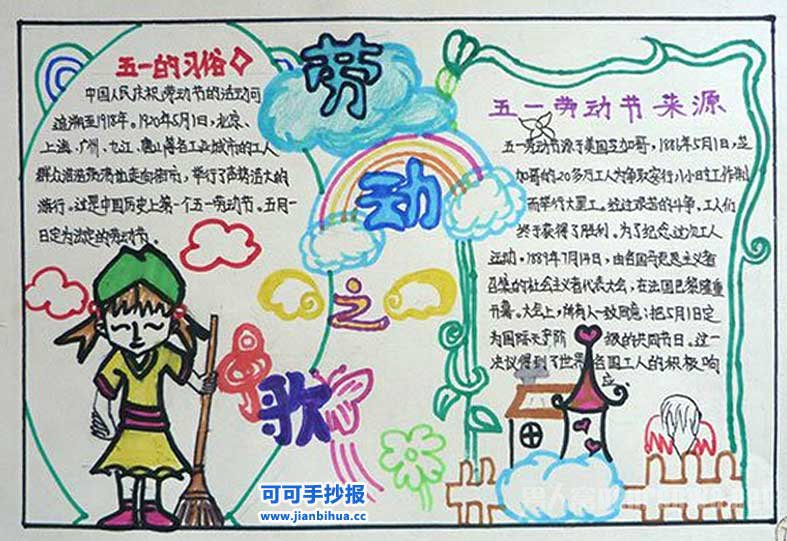 五一的习俗
中国人民庆祝劳动节的活动可
追溯至1918年。1920年5月1日,北京、
上海、广州、九江、唐山等各工业城市的工人
群众浩浩荡荡地走向街市,举行了声势浩大的
游行。这是中国历史上第一个五一劳动节。五月一
日定为法定的劳动节。
劳
动
之
歌
五一劳动节来源
五一劳动节源于美国芝加哥,1886年5月1日,芝
加哥的20多万工人为争取实行八小时工作制
而举行大罢工。经过艰苦的斗争,工人们
终于获得了胜利。为了纪念这次工人
运动。1889年7月14日,由各国马克思主义者
召集的社会主义者代表大会,在法国巴黎隆重
开幕。大会上,所有人一致同意:把5月1日定
为国际无产阶级的共同节日。这一
决议得到了世界各国工人的积极响
应。
可可手抄报
www.jianbihua.cc